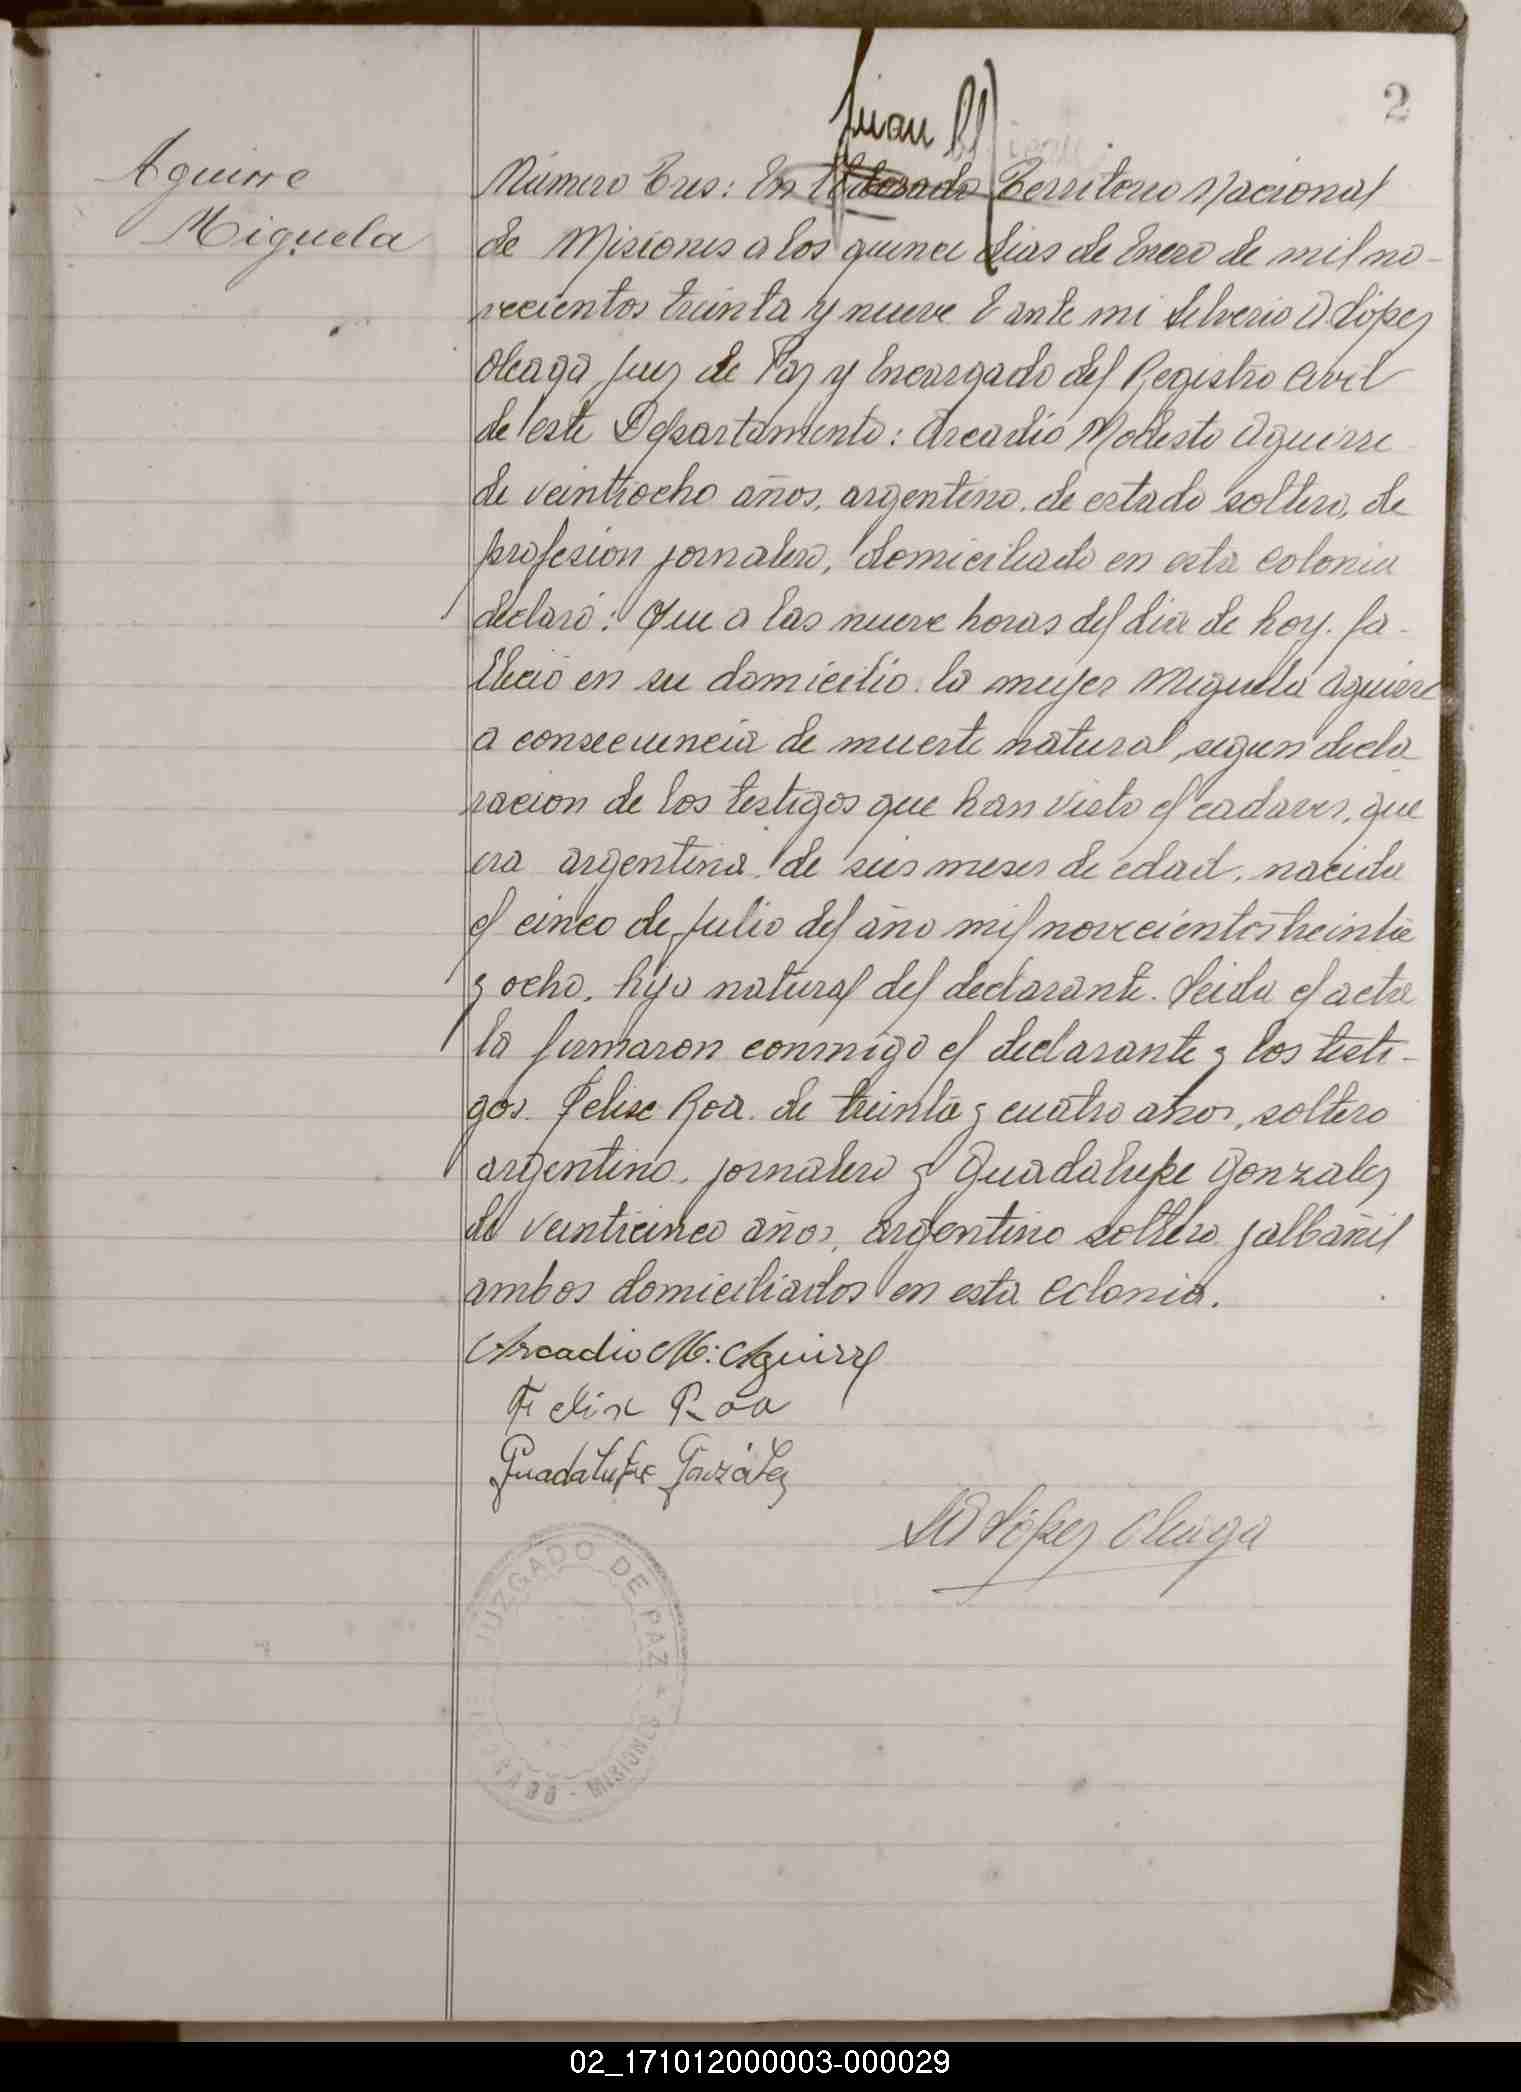 2
Juan
Aguirre
Miguela
Número Tres: En Eldorado Territorio Nacional
de Misiones a los quince dias de Enero de mil no-
vecientos treinta y nueve E ante mi Silverio D. López
Oleaga Juez de Paz y Encargado del Registro Civil
de este Departamento: Arcadio Modesto Aguirre
de veintiocho años, argentino, de estado soltero, de
profesion jornalero, domiciliado en esta colonia
declaró: Que a las nueve horas del dia de hoy. fa-
lleció en su domicilio. la mujer Miguela Aguirre
a consecuencia de muerte natural, segun decla
racion de los testigos que han visto el cadaver, que
era argentina, de seis meses de edad, nacida
el cinco de Julio del año mil novecientos treinta
y ocho, hija natural del declarante. Leida el acta
la firmaron conmigo el declarante y los testi-
gos. Felixe Roa. de treinta y cuatro años, soltero
argentino, jornalero y Guadalupe Gonzalez
de veinticinco años, argentino soltero y albañil
ambos domiciliados en esta colonia.
Arcadio M: Aguirre
Felix Roa
Guadalupe Gonzálz
S D López Oleaga
JUZGADO DE PAZ
MISIONES
02_171012000003-000029